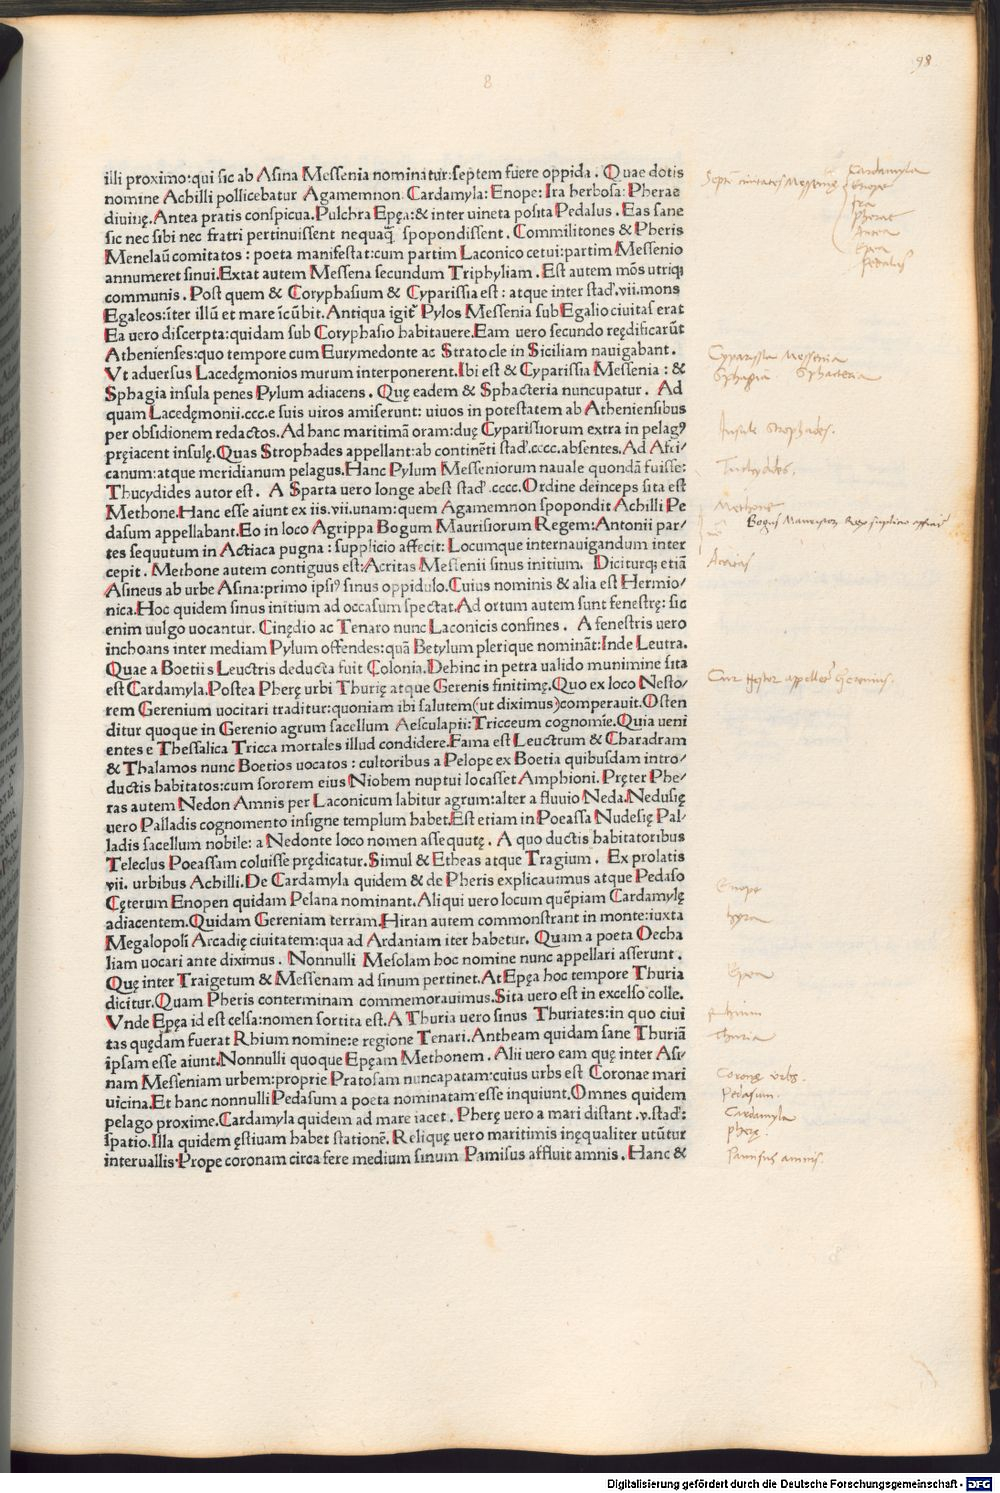 98
8
illi proximo:qui sic ab Asina Messenia nominatur:septem fuere oppida. Quae dotis
nomine Achilli pollicebatur Agamemnon Cardamyla: Enope: Ira herbosa: Pherae
diuinę. Antea pratis conspicua. Pulchra Epęa:& inter uineta posita Pedalus. Eas sane
sic nec sibi nec fratri pertinuissent nequaq̃ spopondissent. Commilitones & Pheris
Menelaū comitatos: poeta manifestat:cum partim Laconico cetui:partim Messenio
annumeret sinui. Extat autem Messena secundum Triphyliam. Est autem mōs utriqꝫ
communis. Post quem & Coryphasium & Cyparissia est: atque inter stad̉.vii.mons
Egaleos:īter illū et mare īcūbit. Antiqua igit̃ Pylos Messenia sub Egalio ciuitas erat
Ea uero discerpta:quidam sub Coryphasio habitauere. Eam uero secundo reędificarūt
Athenienses:quo tempore cum Eurymedonte ac Stratocle in Siciliam nauigabant.
Vt aduersus Lacedęmonios murum interponerent. Ibi est & Cyparissia Messenia: &
Sphagia insula penes Pylum adiacens. Quę eadem & Sphacteria nuncupatur. Ad
quam Lacedęmonii.ccc.e suis uiros amiserunt: uiuos in potestatem ab Atheniensibus
per obsidionem redactos. Ad hanc maritimā oram:duę Cyparissiorum extra in pelagꝰ
pręiacent insulę. Quas Strophades appellant:ab continēti stad̉.cccc.absentes. Ad Afri/
canum:atque meridianum pelagus. Hanc Pylum Messeniorum nauale quondā fuisse:
Thucydides autor est. A Sparta uero longe abest stad̉.cccc. Ordine deinceps sita est
Methone. Hanc esse aiunt ex iis.vii.unam:quem Agamemnon spopondit Achilli Pe
dasum appellabant. Eo in loco Agrippa Bogum Maurisiorum Regem:Antonii par/
tes sequutum in Actiaca pugna: supplicio affecit: Locumque internauigandum inter
cepit. Methone autem contiguus est:Acritas Messenii sinus initium. Diciturqꝫ etiā
Asineus ab urbe Asina:primo ipsiꝰ sinus oppidulo. Cuius nominis & alia est Hermio/
nica. Hoc quidem sinus initium ad occasum spectat. Ad ortum autem sunt fenestrę: sic
enim uulgo uocantur. Cinędio ac Tenaro nunc Laconicis confines. A fenestris uero
inchoans inter mediam Pylum offendes:quā Betylum plerique nomināt:Inde Leutra.
Quae a Boetiis Leuctris deducta fuit Colonia. Dehinc in petra ualido munimine sita
est Cardamyla. Postea Pherę urbi Thurię atque Gerenis finitimę. Quo ex loco Nesto/
rem Gerenium uocitari traditur:quoniam ibi salutem(ut diximus)comperauit. Osten
ditur quoque in Gerenio agrum sacellum Aesculapii: Tricceum cognomīe. Quia ueni
entes e Thessalica Tricca mortales illud condidere. Fama est Leuctrum & Charadram
& Thalamos nunc Boetios uocatos: cultoribus a Pelope ex Boetia quibusdam intro/
ductis habitatos:cum sororem eius Niobem nuptui locasset Amphioni. Pręter Phe/
ras autem Nedon Amnis per Laconicum labitur agrum:alter a fluuio Neda. Nedusię
uero Palladis cognomento insigne templum habet. Est etiam in Poeassa Nudesię Pal/
ladis sacellum nobile: a Nedonte loco nomen assequutę. A quo ductis habitatoribus
Teleclus Poeassam coluisse prędicatur. Simul & Etheas atque Tragium. Ex prolatis
vii. urbibus Achilli. De Cardamyla quidem & de Pheris explicauimus atque Pedaso
Cęterum Enopen quidam Pelana nominant. Aliqui uero locum quēpiam Cardamylę
adiacentem. Quidam Gereniam terram. Hiran autem commonstrant in monte:iuxta
Megalopolī Arcadię ciuitatem:qua ad Ardaniam iter habetur. Quam a poeta Oecha
liam uocari ante diximus. Nonnulli Mesolam hoc nomine nunc appellari asserunt.
Quę inter Traigetum & Messenam ad sinum pertinet. At Epęa hoc tempore Thuria
dicitur. Quam Pheris conterminam commemorauimus. Sita uero est in excelso colle.
Vnde Epęa id est celsa:nomen sortita est. A Thuria uero sinus Thuriates:in quo ciui
tas quędam fuerat Rhium nomine:e regione Tenari. Antheam quidam sane Thuriā
ipsam esse aiunt. Nonnulli quoque Epęam Methonem. Alii uero eam quę inter Asi/
nam Messeniam urbem:proprie Pratosam nuncapatam:cuius urbs est Coronae mari
uicina. Et hanc nonnulli Pedasum a poeta nominatam esse inquiunt. Omnes quidem
pelago proxime. Cardamyla quidem ad mare iacet. Pherę uero a mari distant.v.stad̉:
spatio. Illa quidem ęstiuam habet stationē. Reliquę uero maritimis inęqualiter utūtur
interuallis. Prope coronam circa fere medium sinum Pamisus affluit amnis. Hanc &
Septē ciuitates Messenię
Cardamyla
Enope
Ira
Pherae
Antea
Epea
Pedasus
Cyparissia Messenia
Sphagia Sphacteria
Insule Strophades.
Tuchydides.
Methone
Bogus Maurisiorū Rex suplicio affectus
Acritas
Cur Nestor appellet̃ Gerenius.
Enope
hyra
Epea
rhium
Thuria
Coronę urbs.
Pedasum.
Cardamyla
pherę.
Pamisus amnis.
Digitalisierung gefördert durch die Deutsche Forschungsgemeinschaft - DFG